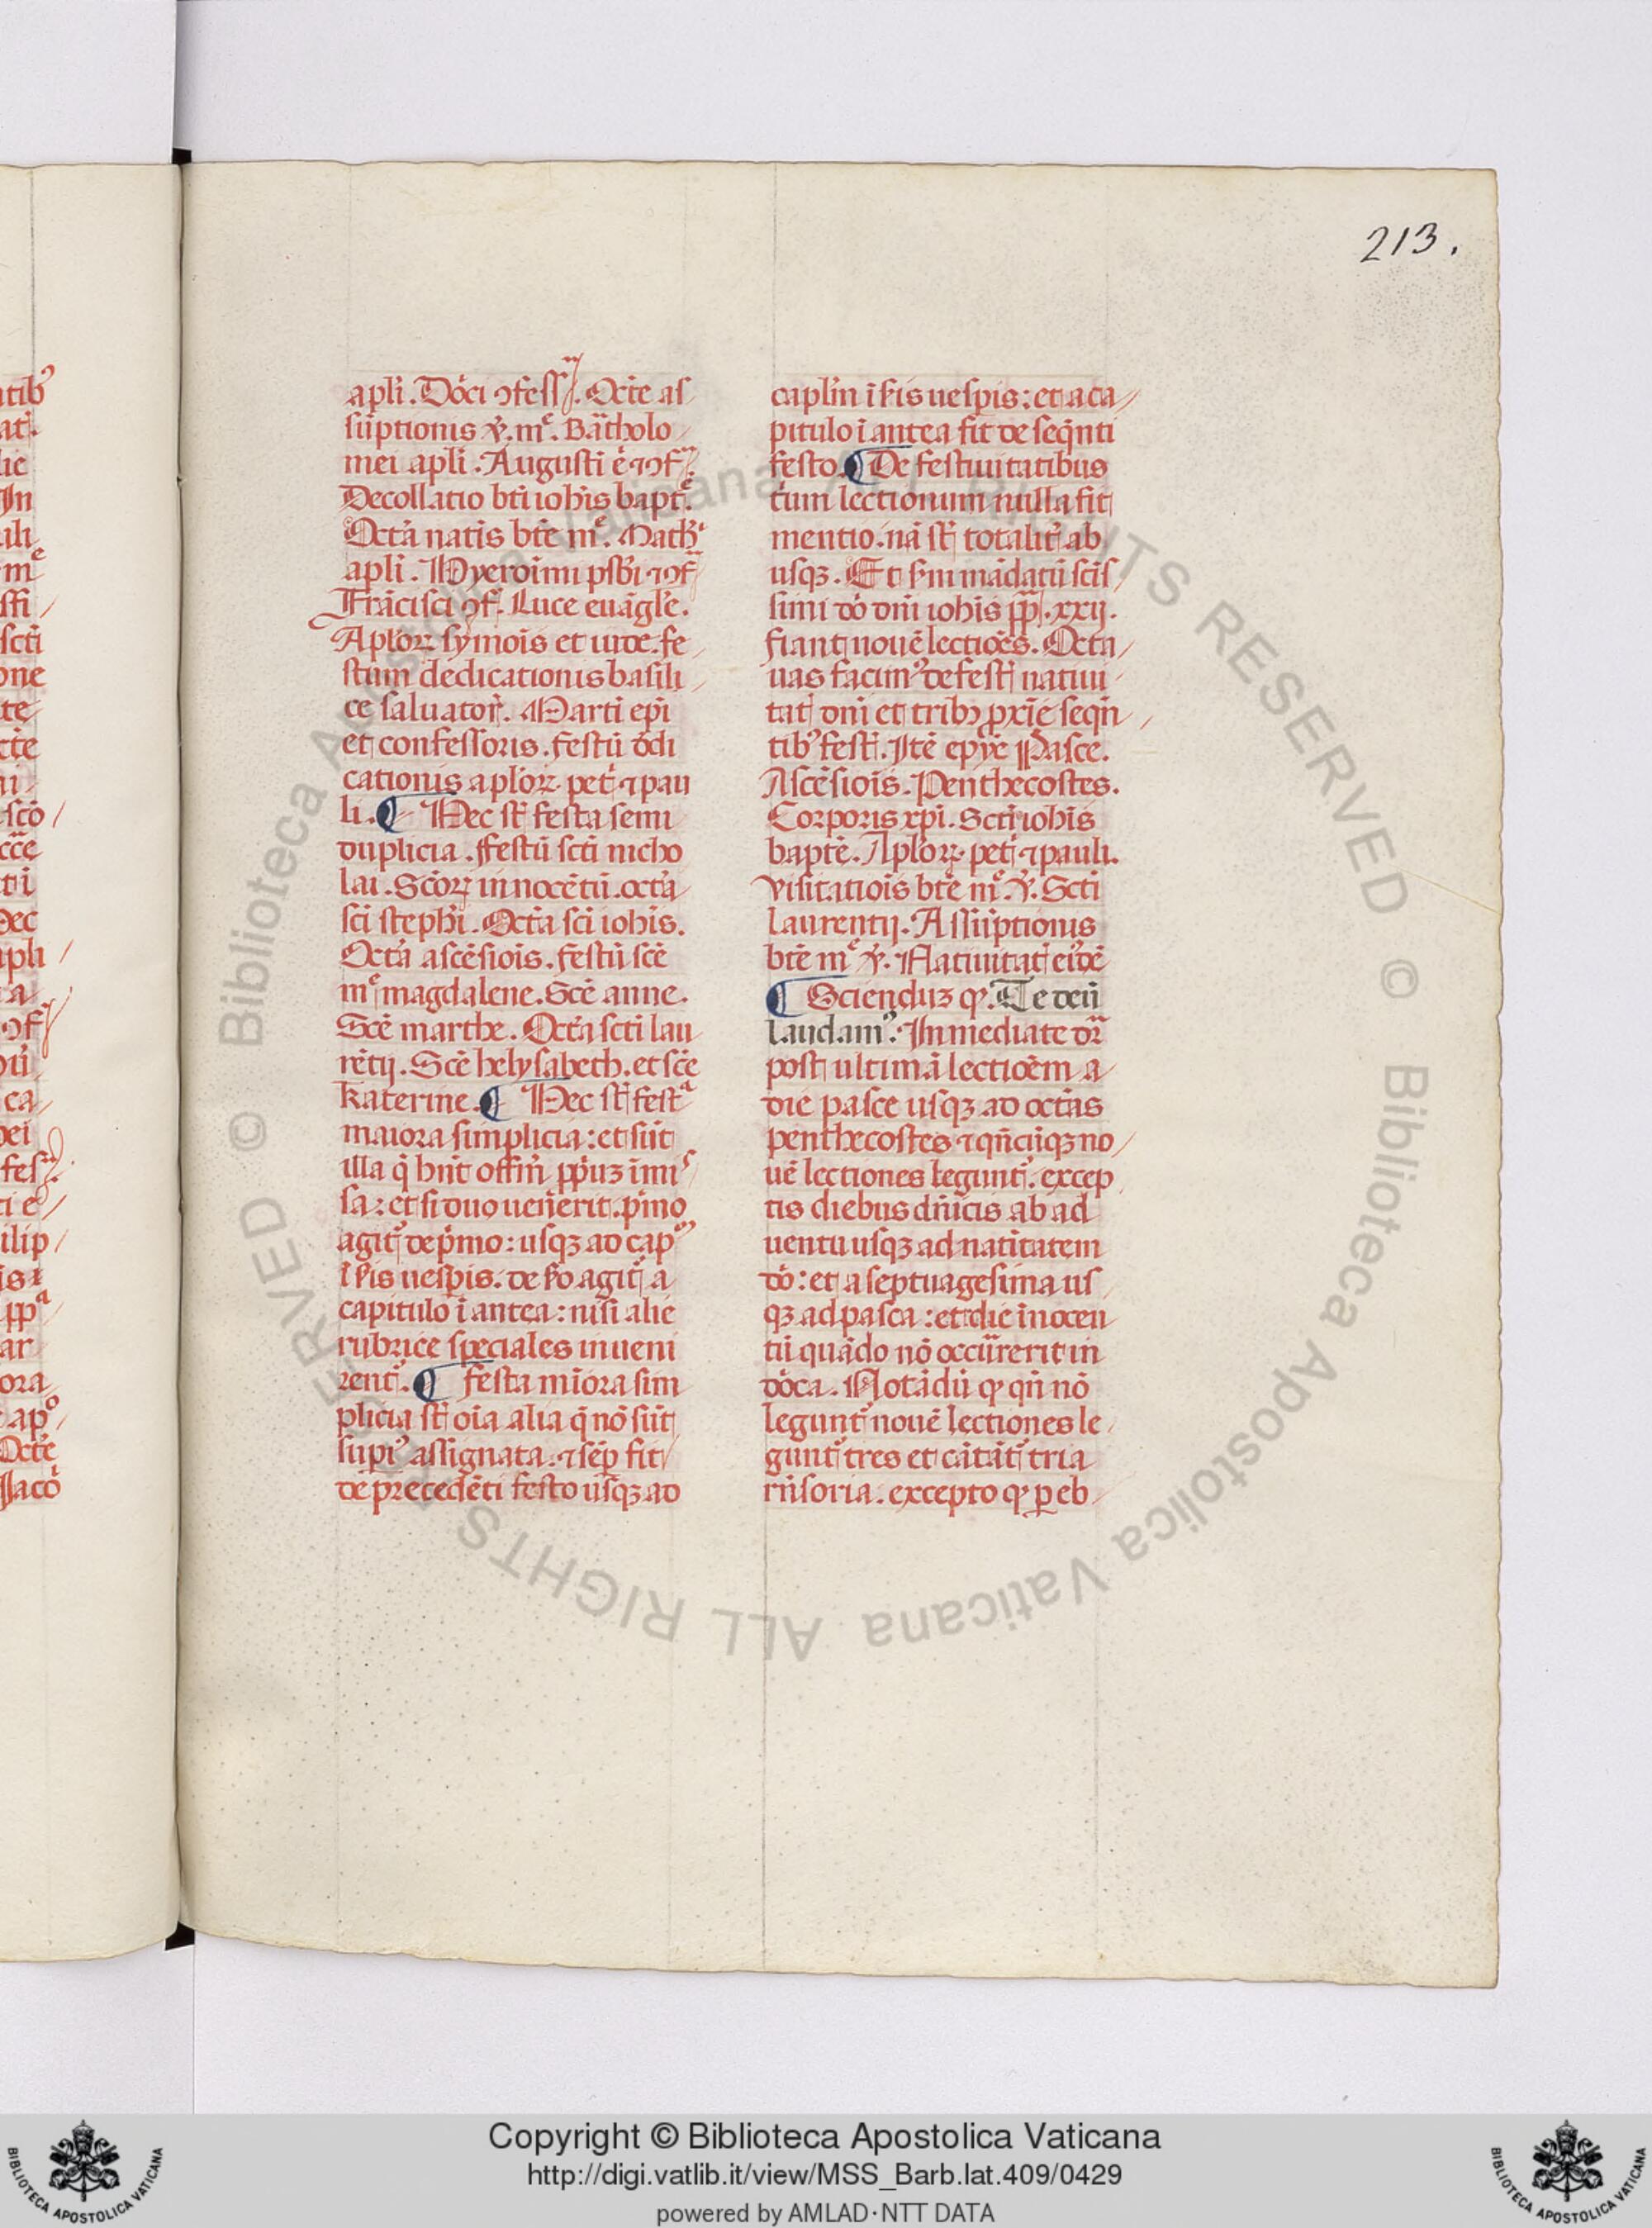 213.
apl̄i. Dō̄ci ꝯfess. Oct̄e as
sūptionis v̄. mᵉ. Bārtholo
mei apl̄i. Augusti ē ⁊ ꝯf.
Decollatio bt̄i ioh̄is bapt̄ᵉ.
Oct̄a natīs bt̄e mᵉ. Math̄ⁱ
apl̄i. Hyeronīmi psb̄i ⁊ ꝯf
Frācisci ꝯf. Luce euāgl̄e.
Apl̄oꝝ symōis et iude. fe
stum dedicationis basili
ce saluator̄. Marti ep̄i
et confessoris. festū dedi
cationis apl̄oꝝ petⁱ ⁊ pau
li. ¶ Hec st̄ festa semi
duplicia. Festū sc̄ti nicho
lai. Sc̄oꝝ innocētū. oct̄a
sc̄i steph̄i. Oct̄a sc̄i ioh̄is.
Oct̄a ascēsiōis. festū sc̄e
mᵉ magdalene. Sc̄e anne.
Sc̄e marthe. Oct̄a sc̄ti lau
rētij. Sc̄e helysabeth. et sc̄e
katerine. ¶ Hec st̄ festᵃ
maiora simplicia: et sūt
illa q̄ hn̄t offīm ꝓpriuz
sa: et si duo uen̄erit. pⁱmo
agit̄ᵘʳ de pⁱmo: usqꝫ ad cap
de agit̄ᵘʳ a
capitulo ī antea: nisi alie
rubrice speciales inueni
rent̄ᵘʳ. ¶ festa mīora sim
plicia st̄ oīa alia q̄ nō sūt
supⁱᵘˢ assignata. ⁊ sēp fit
de precedēti festo usqꝫ ad
capl̄m ī uesp̄is: et a ca
pitulo ī antea fit de seq̄nti
festo. ¶ De festiuitatibus
tⁱum lectionum nulla fit
mentio. nā st̄ totalit̄ ab
usqꝫ. Et mādatū scīs
simi dō dn̄i ioh̄is pp̄. xxij.
fiant nouē lectiōes. Octa
uas facimᵘˢ de festⁱ natiui
tat̄ dn̄i et tribꝰ ꝓxīe seq̄n
tibꝰ festⁱ. Itē epyē Pasce.
Ascēsiōis. Penthecostes.
Corporis xp̄i. Sc̄ti ioh̄is
bapt̄e. Apl̄oꝝ petⁱ ⁊ pauli.
Visitatiōis bt̄e mᵉ v̄. Sc̄ti
Laurentij. Assūptionis
bt̄e mᵉ v̄. Natiuitat̄ eiꝰdē
¶ Sciendūz qꝫ. Te deū
laudamꝰ. Inmediate dr̄
post ultimā lectiōem a
die pasce usqꝫ ad oct̄as
penthecostes ⁊ qn̄cūqꝫ no
uē lectiones legunt̄ᵘʳ. excep
tis diebus dn̄icis ab ad
uentu usqꝫ ad nat̄itatem
dō: et a septuagesima us
qꝫ ad pasca: et die īnocen
tū quādo nō occūrrerit in
dō̄ca. Notādū qꝫ qn̄ nō
legunt̄ᵘʳ nouē lectiones le
gunt̄ᵘʳ tres et cātāt̄ᵘʳ tria
rn̄soria. excepto qꝫ ꝑ eb
Copyright © Biblioteca Apostolica Vaticana
http://digi.vatlib.it/view/MSS_Barb.lat.409/0429
powered by AMLAD·NTT DATA